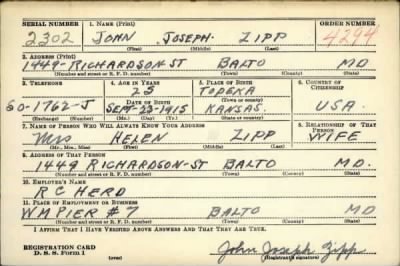 SERIAL NUMBER 1. NAME (Print) ORDER NUMBER
2302 JOHN JOSEPH ZIPP 4294
(First) (Middle) (Last)
2. ADDRESS (Print)
1449-RICHARDSON ST BALTO MD
(Number and street or R. F. D. number) (Town) (County) (State)
3. TELEPHONE 4. AGE IN YEARS 5. PLACE OF BIRTH 6. COUNTRY OF CITIZENSHIP
25 TOPEKA
DATE OF BIRTH (Town or county)
SO-1762-J SEPT-23-1915 KANSAS. USA.
(Exchange) (Number) (Mo.) (Day) (Yr.) (State or country)
7. NAME OF PERSON WHO WILL ALWAYS KNOW YOUR ADDRESS 8. RELATIONSHIP OF THAT PERSON
Mrs HELEN ZIPP WIFE
(Mr., Mrs., Miss) (First) (Middle) (Last)
9. ADDRESS OF THAT PERSON
1449 RICHARDSON-ST BALTO MD.
(Number and street or R. F. D. number) (Town) (County) (State)
10. EMPLOYER'S NAME
R C HERD
11. PLACE OF EMPLOYMENT OR BUSINESS
WM PIER #7 BALTO MD
(Number and street or R. F. D. number) (Town) (County) (State)
I AFFIRM THAT I HAVE VERIFIED ABOVE ANSWERS AND THAT THEY ARE TRUE.
REGISTRATION CARD
D. S. S. Form 1 (over) John Joseph Zipp
(Registrant's signature)